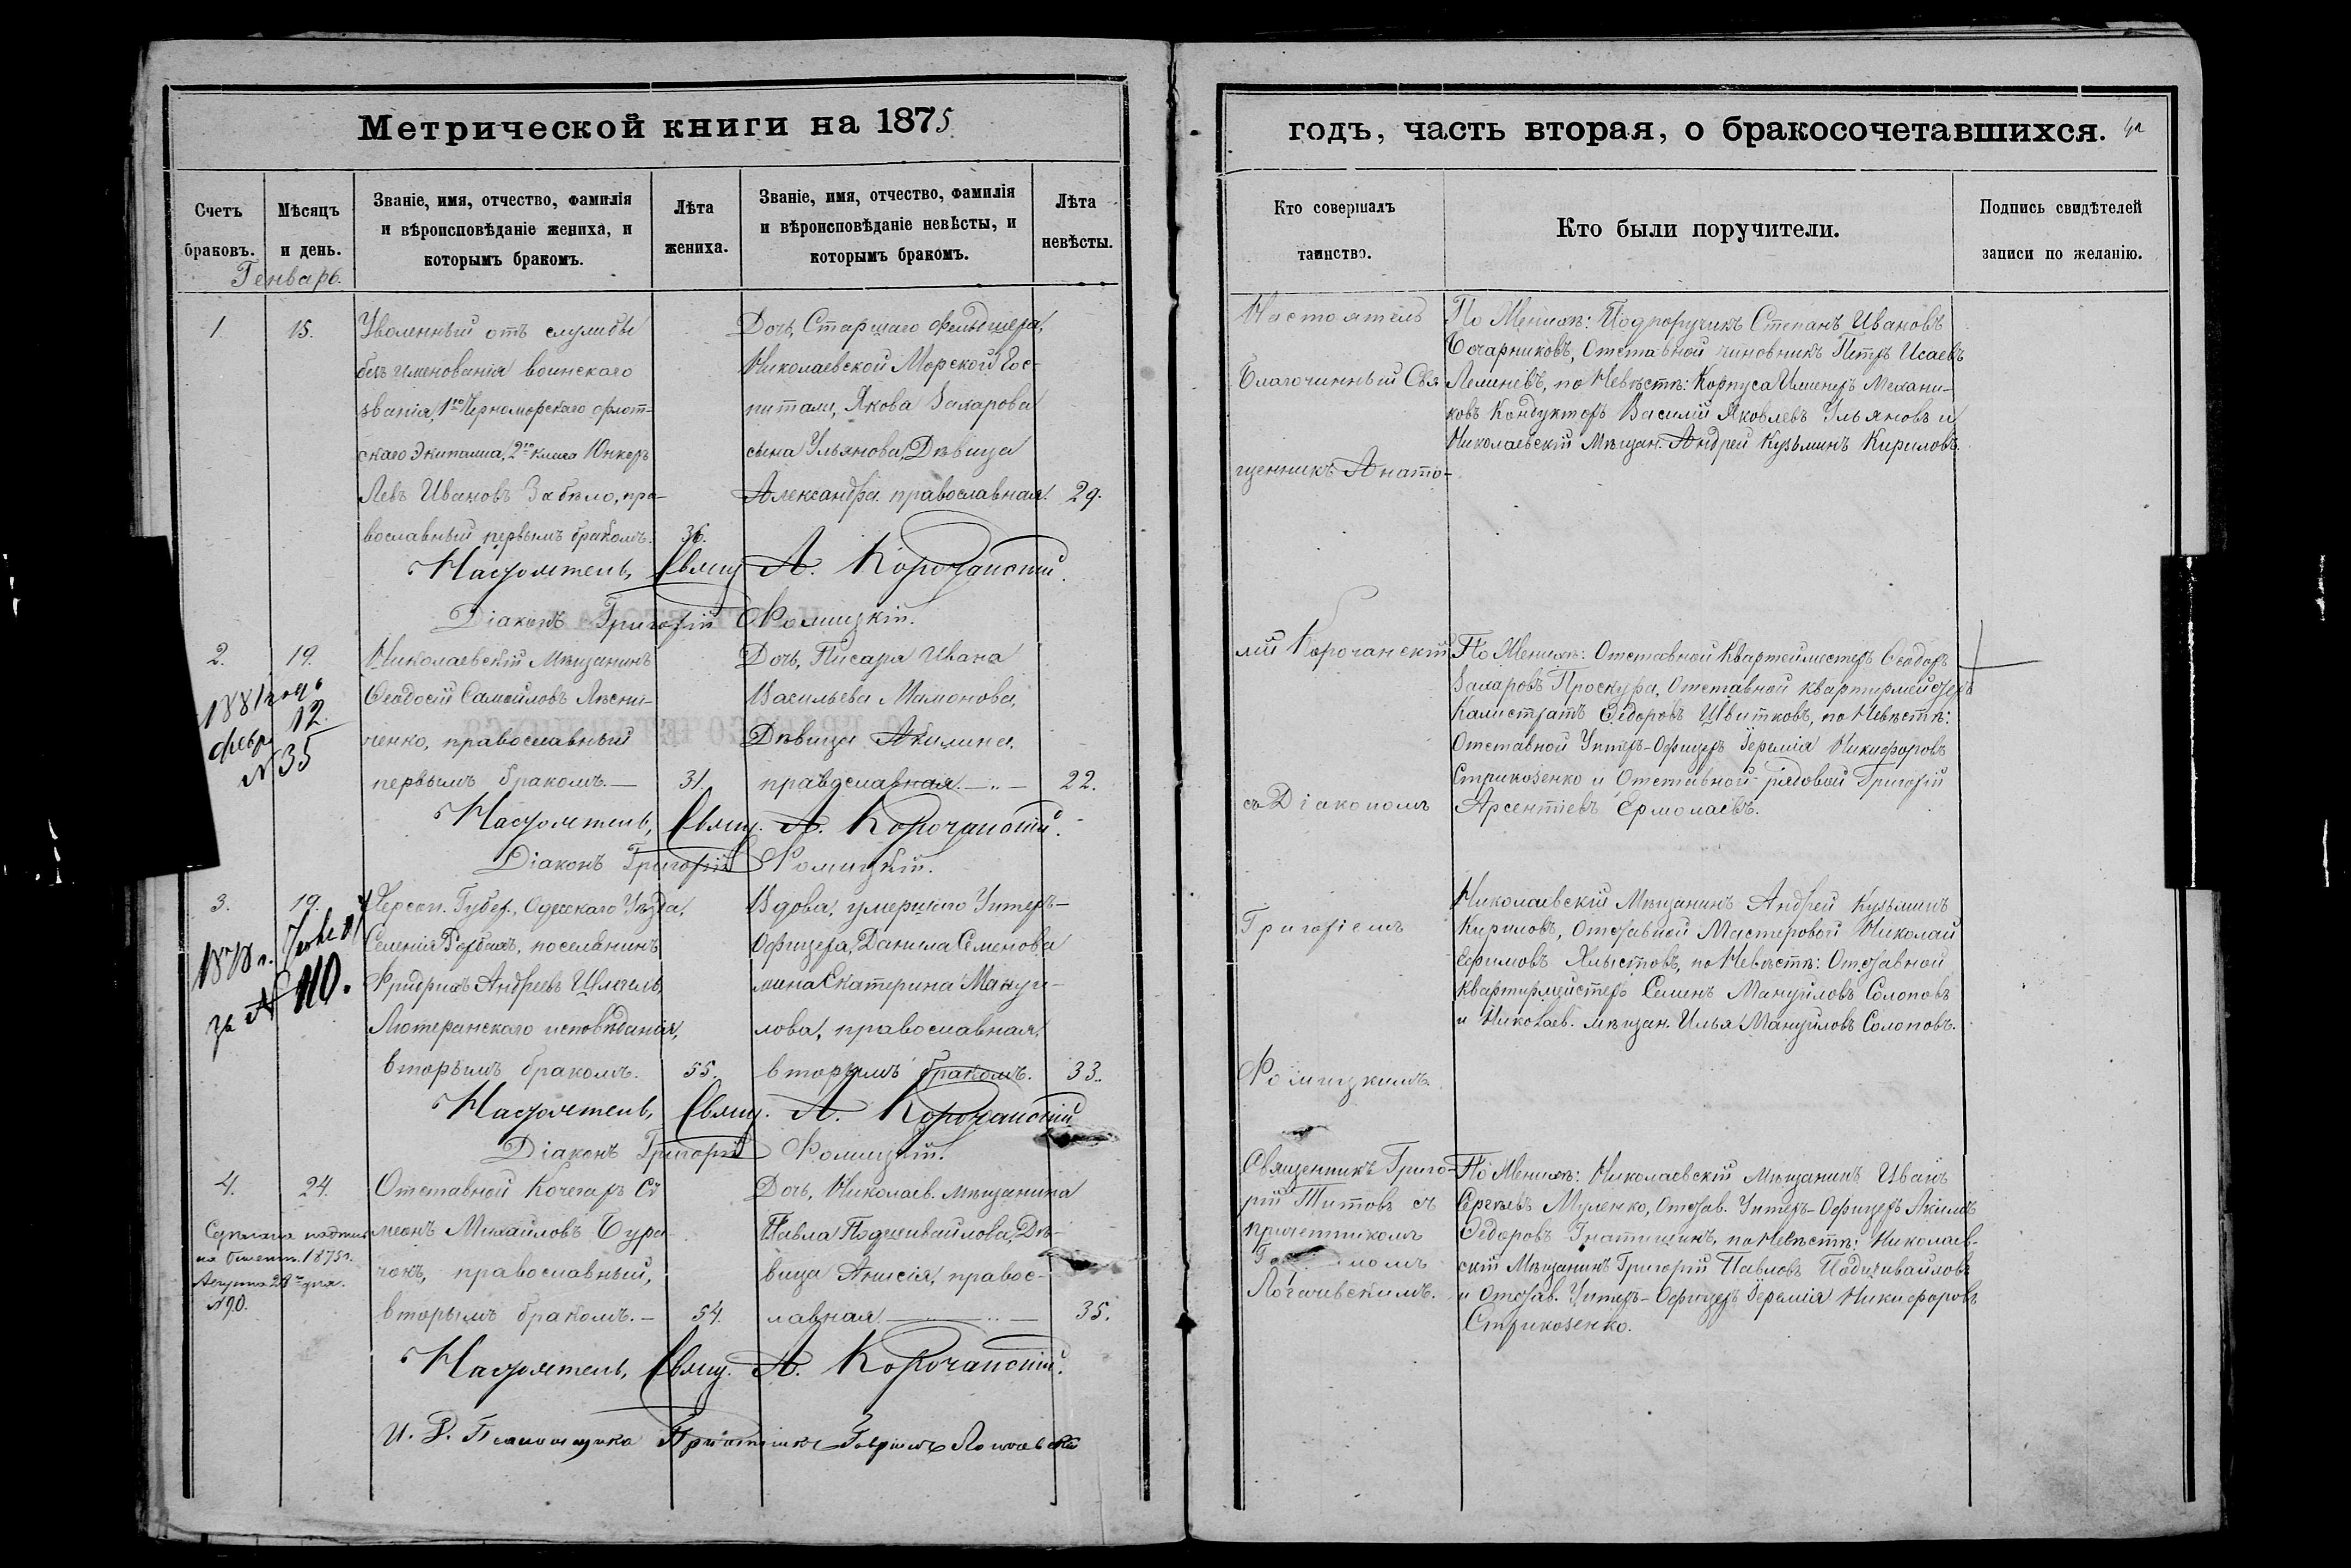 Метрической книги на 1875
Счетъ браковъ.
Мѣсяцъ и день.
Званіе, имя, отчество, фамилія и вѣроисповѣданіе жениха, и которымъ бракомъ.
Лѣта жениха.
Званіе, имя, отчество, фамилія и вѣроисповѣданіе невѣсты, и которымъ бракомъ.
Лѣта невѣсты.
Генварь.
1.
15.
Уволенный отъ службы
безъ именованія воинскаго
званія, 1го Черноморскаго флот-
скаго Экипажа, 2го класса Юнкеръ
Левъ Ивановъ Забѣло, пра-
вославный первымъ бракомъ.
36.
Дочь, Старшаго фельдшера,
Николаевской Морской Гос-
питали, Якова Захарова
сына Ульянова, Дѣвица
Александра православная.
29.
Настоятель, Свящ. А. Корочанскій.
Діаконъ Григорій Ромицкій.
2.
19.
1881 года
февр. 12.
N 35
Николаевскій Мѣщанинъ
Феодосій Самойловъ Лѣсни-
ченко, православный
первымъ бракомъ.—
31.
Дочь, Писаря Ивана
Васильева Мамонова,
Дѣвица Акилина,
православная.—..—
22.
Настоятель, Свящ. А. Корочанскій.
Діаконъ Григорій Ромицкій.
3.
19.
1878 г.
за № 110.
Херсон. Губер., Одесскаго Уѣзда,
Селенія Рорбахъ, поселянинъ
Фридрихъ Андреевъ Шлегель,
Лютеранскаго исповѣданія,
вторымъ бракомъ.
55.
Вдова, умершаго Унтеръ-
Офицера, Данила Семенова
Екатерина Мануи-
лова, православная,
вторымъ бракомъ.
33.
Настоятель, Свящ. А. Корочанскій
Діаконъ Григорій Ромицкій.
4.
24.
на билетъ. 1875 г.
Августа 28го дня.
N 90.
Отставной Кочегаръ Си
меонъ Михайловъ Бура-
чокъ, православный,
вторымъ бракомъ.—
54.
Дочь, Николаев. мѣщанина
Павла Подшивайлова, Дѣ-
вица Анисія, правос-
лавная.—..—..—
35.
Настоятель, Свящ. А. Корочанскій.
И. Д. Псаломщика Причетникъ Гавріилъ Логачевскій
годъ, часть вторая, о бракосочетавшихся.
Кто совершалъ таинство.
Кто были поручители.
Подпись свидѣтелей записи по желанію.
Настоятель
Благочинный Свя
щенникъ Анато-
лій Корочанскій
съ Діакономъ
Григоріемъ
Ромицкимъ.
По Женихѣ: Подпоручикъ Степанъ Ивановъ
Бочарниковъ, Отставной чиновникъ Петръ Исаевъ
по Невѣстѣ: Корпуса Инженеръ Механи-
ковъ Кондукторъ Василій Яковлевъ Ульяновъ и
Николаевскій Мѣщан. Андрей Кузьминъ Кириловъ.
По Женихѣ: Отставной Квартейместеръ Феодоръ
Захаровъ Проскура, Отставной квартирмейстеръ
Калистратъ Федоровъ Цвитковъ, по Невѣстѣ:
Отставной Унтеръ-Офицеръ Іеремія Никифоровъ
Стрикозенко и Отставной рядовой Григорій
Арсентіевъ Ермолаевъ.
Николаевскій Мѣщанинъ Андрей Кузьминъ
Кириловъ, Отставной Мастеровой Николай
Ефимовъ Хлыстовъ, по Невѣстѣ: Отставной
Квартирмейстеръ Семенъ Мануйловъ Солоповъ
и Николаев. мѣщан. Илья Мануйловъ Солоповъ.
Священникъ Григо-
рій Титовъ съ
причетникомъ
Логачевскимъ.
По Женихѣ: Николаевскій мѣщанинъ Иванъ
Сергѣевъ Муленко, Отстав. Унтеръ-Офицеръ Акимъ
Федоровъ Игнатишинъ, по Невѣстѣ: Николаев-
скій Мѣщанинъ Григорій Павловъ Подшивайловъ
и Отстав. Унтеръ-Офицеръ Іеремія Никифоровъ
Стрикозенко.